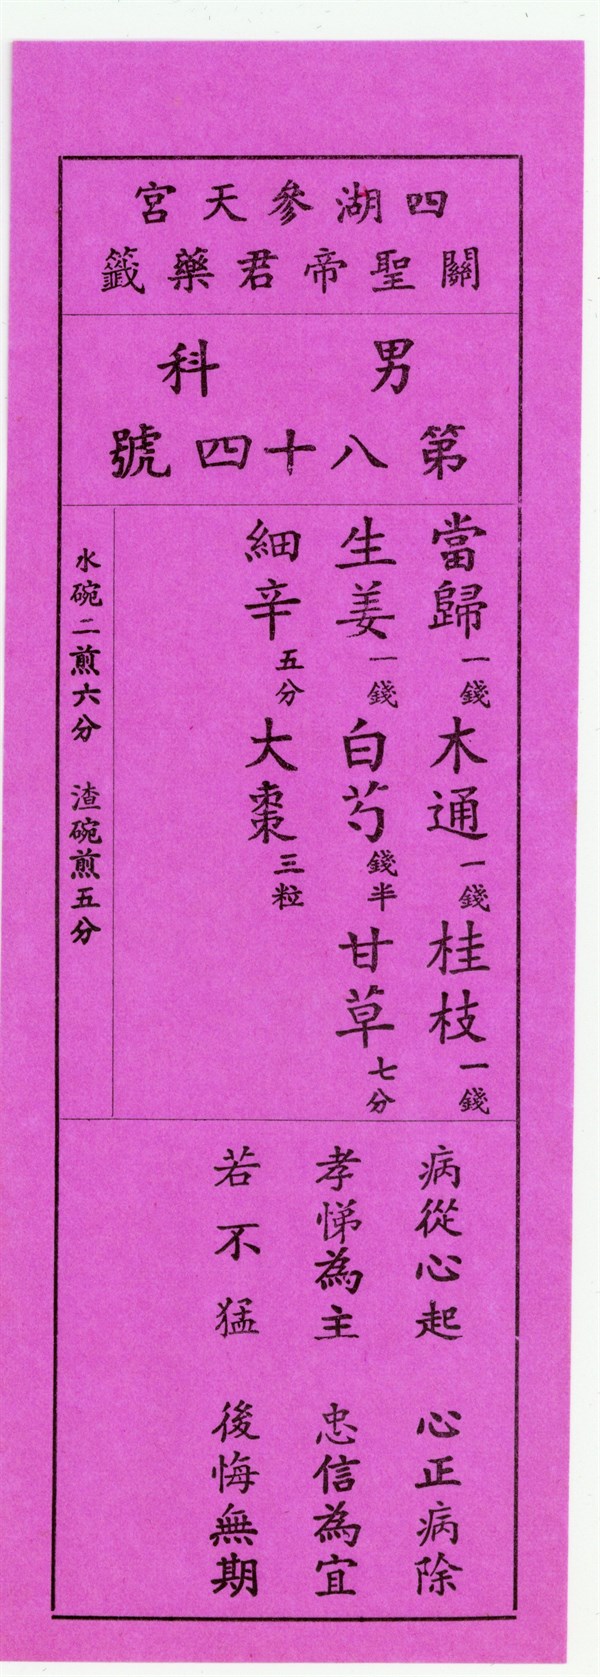 四湖參天宮
關聖帝君藥籤
男科
第八十四號
當歸一錢 木通一錢 桂枝一錢
生姜一錢 白芍錢半 甘草七分
細辛五分 大棗三粒
水碗二煎六分 渣碗煎五分
病從心起 心正病除
孝悌為主 忠信為宜
若不猛 後悔無期